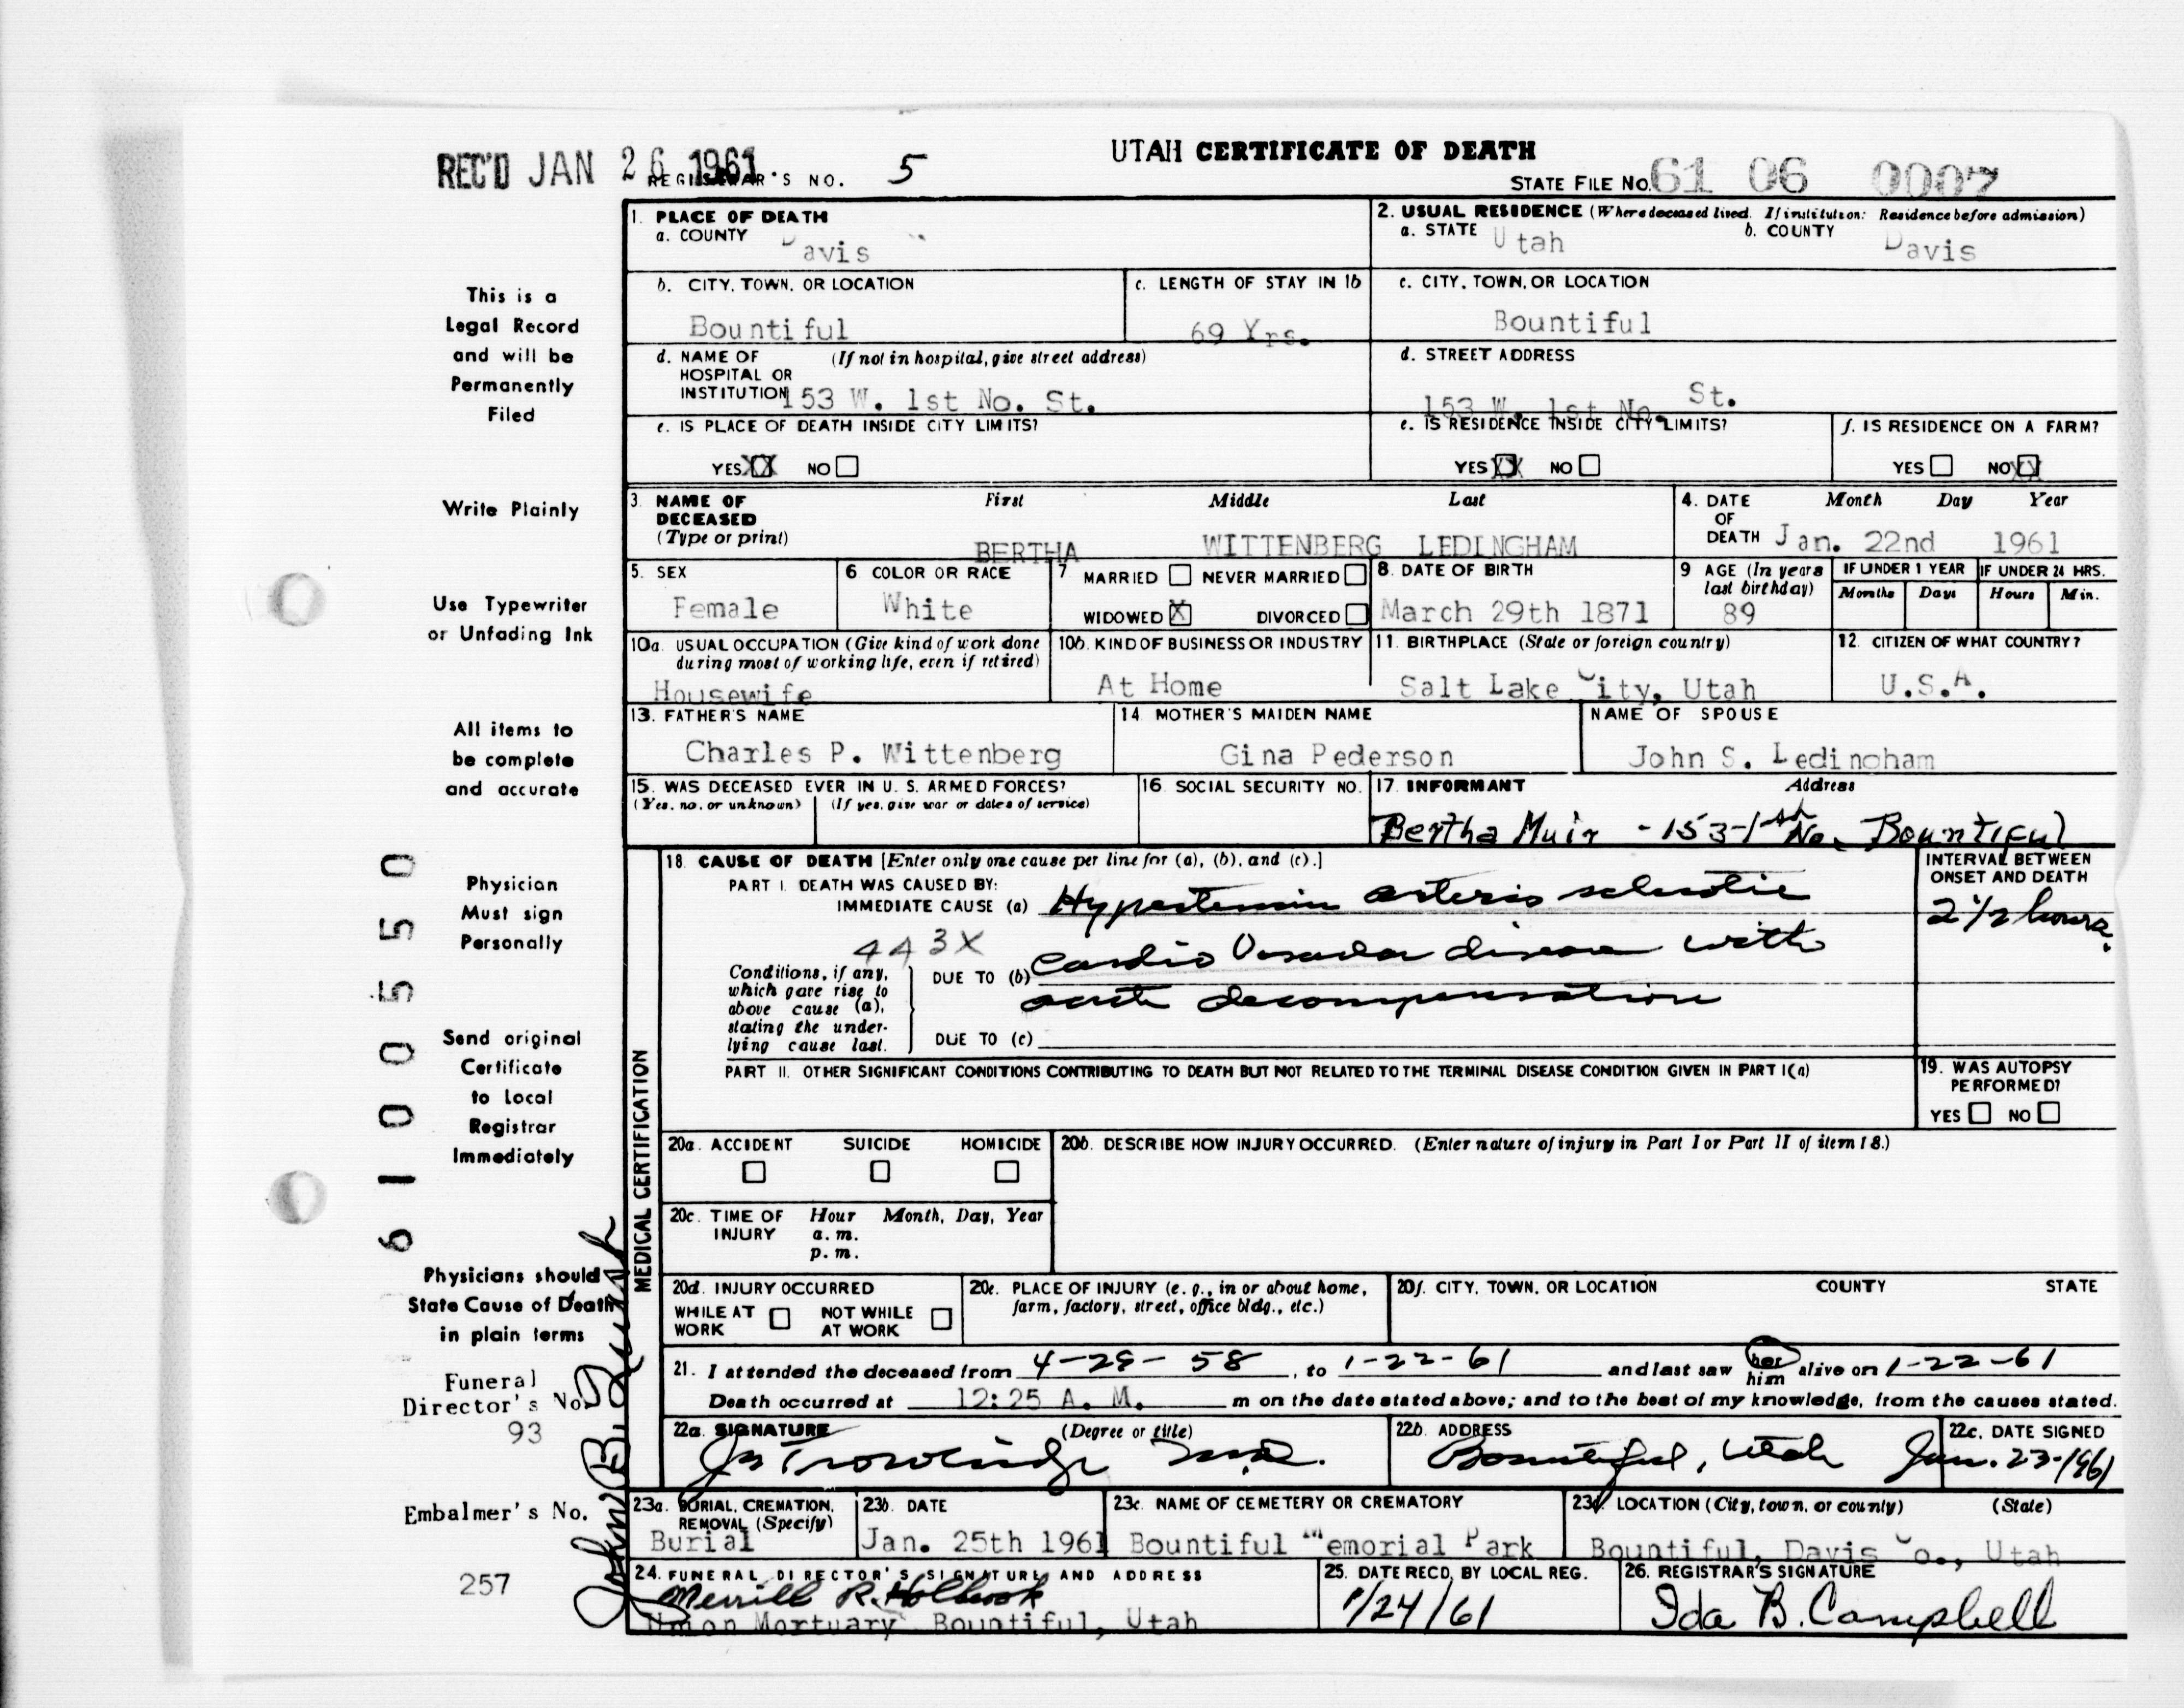 UTAH CERTIFICATE OF DEATH
REC'D JAN 26 1961
REGISTRAR'S NO. 5
STATE FILE NO. 61 06 0007
1. PLACE OF DEATH
a. COUNTY
Davis
2. USUAL RESIDENCE (Where deceased lived. If institution: Residence before admission)
a. STATE Utah b. COUNTY Davis
b. CITY, TOWN, OR LOCATION
Bountiful
c. LENGTH OF STAY IN 1b
69 Yrs.
c. CITY, TOWN, OR LOCATION
Bountiful
d. NAME OF (If not in hospital, give street address)
HOSPITAL OR
INSTITUTION 153 W. 1st No. St.
d. STREET ADDRESS
153 W. 1st No. St.
e. IS PLACE OF DEATH INSIDE CITY LIMITS?
YES XX NO
e. IS RESIDENCE INSIDE CITY LIMITS?
YES XX NO
f. IS RESIDENCE ON A FARM?
YES NO XX
3. NAME OF DECEASED (Type or print)
First Middle Last
BERTHA WITTENBERG LEDINGHAM
4. DATE OF DEATH Month Day Year
Jan. 22nd 1961
5. SEX
Female
6 COLOR OR RACE
White
7 MARRIED NEVER MARRIED
WIDOWED X DIVORCED
8. DATE OF BIRTH
March 29th 1871
9 AGE (In years last birthday)
89
IF UNDER 1 YEAR
Months Days
IF UNDER 24 HRS.
Hours Min.
10a. USUAL OCCUPATION (Give kind of work done
during most of working life, even if retired)
Housewife
10b. KIND OF BUSINESS OR INDUSTRY
At Home
11. BIRTHPLACE (State or foreign country)
Salt Lake City, Utah
12. CITIZEN OF WHAT COUNTRY?
U.S.A.
13. FATHER'S NAME
Charles P. Wittenberg
14. MOTHER'S MAIDEN NAME
Gina Pederson
NAME OF SPOUSE
John S. Ledingham
15. WAS DECEASED EVER IN U. S. ARMED FORCES?
(Yes, no, or unknown) (If yes, give war or dates of service)
16. SOCIAL SECURITY NO.
17. INFORMANT Address
Bertha Muir - 153-1st No. Bountiful
MEDICAL CERTIFICATION
18. CAUSE OF DEATH [Enter only one cause per line for (a), (b), and (c).]
PART I. DEATH WAS CAUSED BY:
IMMEDIATE CAUSE (a) Hypertensive arterio sclerotic
443X
DUE TO (b) Cardio Vascular disease with
acute decompensation
DUE TO (c)
Conditions, if any,
which gave rise to
above cause (a),
stating the under-
lying cause last.
INTERVAL BETWEEN
ONSET AND DEATH
2 1/2 hours.
PART II. OTHER SIGNIFICANT CONDITIONS CONTRIBUTING TO DEATH BUT NOT RELATED TO THE TERMINAL DISEASE CONDITION GIVEN IN PART I(a)
19. WAS AUTOPSY
PERFORMED?
YES NO
20a. ACCIDENT SUICIDE HOMICIDE
20b. DESCRIBE HOW INJURY OCCURRED. (Enter nature of injury in Part I or Part II of item 18.)
20c. TIME OF INJURY Hour Month, Day, Year
a. m.
p. m.
20d. INJURY OCCURRED
WHILE AT WORK NOT WHILE AT WORK
20e. PLACE OF INJURY (e. g., in or about home,
farm, factory, street, office bldg., etc.)
20f. CITY, TOWN, OR LOCATION COUNTY STATE
21. I attended the deceased from 4-28-58, to 1-22-61 and last saw her him alive on 1-22-61
Death occurred at 12:25 A. M. m on the date stated above; and to the best of my knowledge, from the causes stated.
22a. SIGNATURE (Degree or title)
Trowbridge M.D.
22b. ADDRESS
Bountiful, Utah
22c. DATE SIGNED
Jan. 23-1961
23a. BURIAL, CREMATION,
REMOVAL (Specify)
Burial
23b. DATE
Jan. 25th 1961
23c. NAME OF CEMETERY OR CREMATORY
Bountiful Memorial Park
23d. LOCATION (City, town, or county) (State)
Bountiful, Davis Co., Utah
24. FUNERAL DIRECTOR'S SIGNATURE AND ADDRESS
Merrill R. Holbrook
Union Mortuary Bountiful, Utah
25. DATE RECD. BY LOCAL REG.
1/24/61
26. REGISTRAR'S SIGNATURE
Ida B. Campbell
This is a
Legal Record
and will be
Permanently
Filed
Write Plainly
Use Typewriter
or Unfading Ink
All items to
be complete
and accurate
Physician
Must sign
Personally
Send original
Certificate
to Local
Registrar
Immediately
Physicians should
State Cause of Death
in plain terms
Funeral
Director's No.
93
Embalmer's No.
257
6100550
John B.